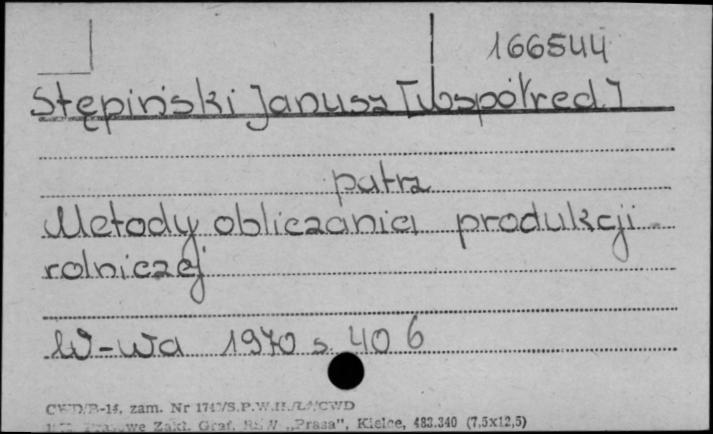 166544
Stępiński Janusz [współred.]
patrz
Metody obliczania produkcji
rolniczej
W-wa 1970 s. 406
CWD/B-14, zam. Nr 1747/S.P.W.H./ CWD
Zakł. Graf. RSW „Prasa”, Kielce, 483.340 (7,5x12,5)